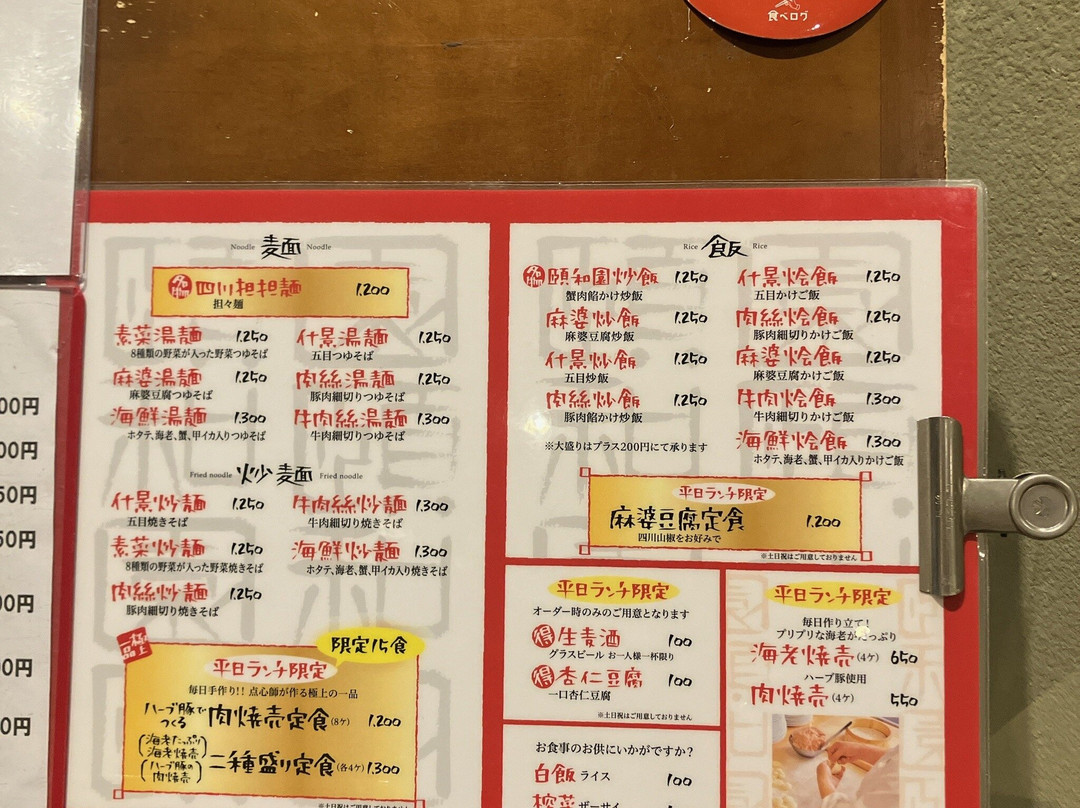 食べログ
00円
00円
50円
50円
00円
00円
0円
Noodle 麦面 Noodle
名物 四川担担麺 1.200
担々麺
素菜湯麺 1.250
8種類の野菜が入った野菜つゆそば
什景湯麺 1.250
五目つゆそば
麻婆湯麺 1.250
麻婆豆腐つゆそば
肉絲湯麺 1.250
豚肉細切りつゆそば
海鮮湯麺 1.300
ホタテ、海老、蟹、甲イカ入りつゆそば
牛肉絲湯麺 1.300
牛肉細切りつゆそば
Fried noodle 炒麦面 Fried noodle
什景炒麺 1.250
五目焼きそば
牛肉絲炒麺 1.300
牛肉細切り焼きそば
素菜炒麺 1.250
8種類の野菜が入った野菜焼きそば
海鮮炒麺 1.300
ホタテ、海老、蟹、甲イカ入り焼きそば
肉絲炒麺 1.250
豚肉細切り焼きそば
極上一品
限定15食
平日ランチ限定
毎日手作り!! 点心師が作る極上の一品
ハーブ豚でつくる 肉焼売定食(8ケ) 1.200
(海老たっぷり海老焼売)
(ハーブ豚の肉焼売)
二種盛り定食(各4ケ) 1.300
※土日祝はご用意しておりません
Rice 飯 Rice
名物 頤和園炒飯 1.250
蟹肉餡かけ炒飯
麻婆炒飯 1.250
麻婆豆腐炒飯
什景炒飯 1.250
五目炒飯
肉絲炒飯 1.250
豚肉餡かけ炒飯
※大盛りはプラス200円にて承ります
什景烩飯 1.250
五目かけご飯
肉絲烩飯 1.250
豚肉細切りかけご飯
麻婆烩飯 1.250
麻婆豆腐かけご飯
牛肉烩飯 1.300
牛肉細切りかけご飯
海鮮烩飯 1.300
ホタテ、海老、蟹、甲イカ入りかけご飯
平日ランチ限定
麻婆豆腐定食 1.200
四川山椒をお好みで
※土日祝はご用意しておりません
平日ランチ限定
オーダー時のみのご用意となります
得 生麦酒 100
グラスビール お一人様一杯限り
得 杏仁豆腐 100
一口杏仁豆腐
※土日祝はご用意しておりません
お食事のお供にいかがですか?
白飯 ライス 100
榨菜 ザーサイ
平日ランチ限定
毎日作り立て!
プリプリな海老がたっぷり
海老焼売(4ケ) 650
ハーブ豚使用
肉焼売(4ケ) 550